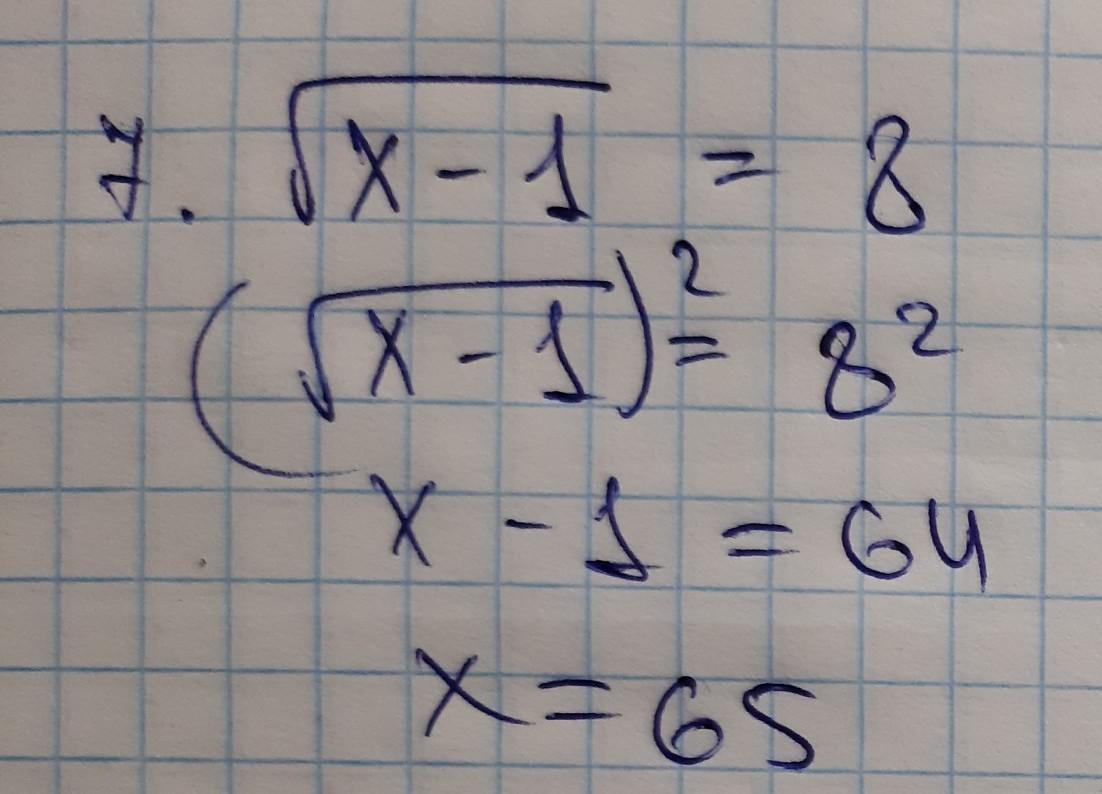 7. √(x - 1) = 8
(√(x - 1))² = 8²
x - 1 = 64
x = 65